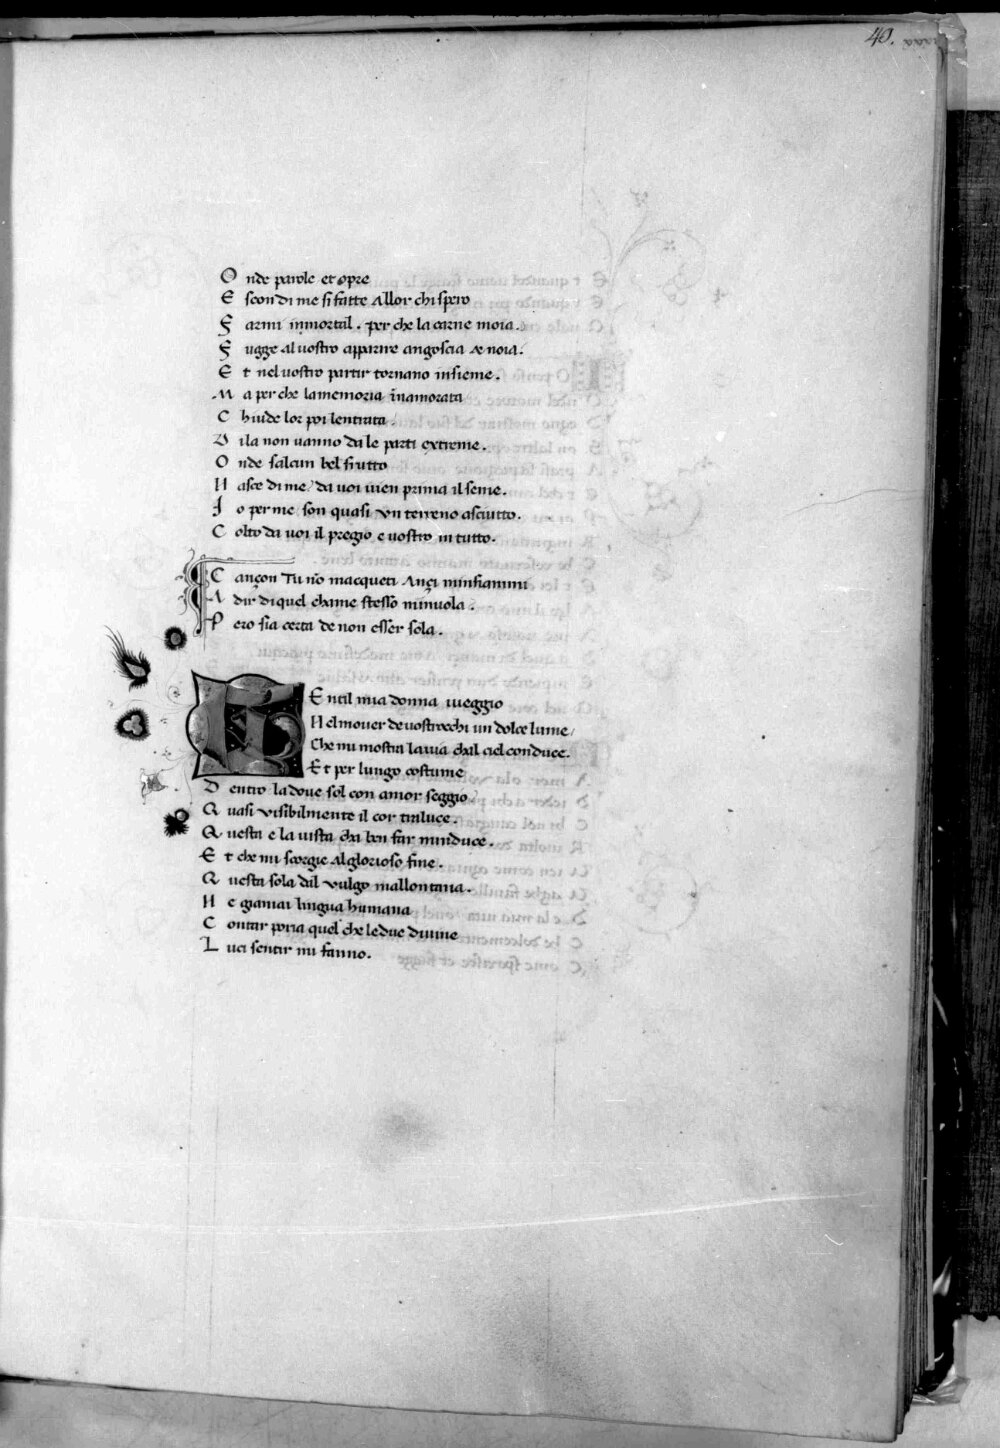 40.
O nde parole et opre
E scon di me si fatte allor chi spero
F armi inmortal. per che la carne moia.
F ugge al uostro apparire angoscia & noia.
E t nel uostro partir tornano insieme.
M a per che la memoria īnamorata
C hiude lor poi lentrata
D i la non uanno da le parti extreme.
O nde salcun bel frutto
N asce di me/ da uoi uien prima il seme.
I o per me son quasi vn terreno asciutto.
C olto da uoi il pregio e uostro in tutto.
C ançon Tu nō macqueti Ançi minfiammi
A dir di quel chame stesso minuola.
P ero sia certa de non esser sola.
G Entil mia donna i ueggio
N el mouer de uostrocchi un dolce lume/
Che mi mostra la uia chal ciel conduce.
E t per lungo costume
D entro la doue sol con amor seggio
Q uasi visibilmente il cor traluce.
Q uesta e la uista cha ben far minduce.
E t che mi scorgie al glorioso fine.
Q uesta sola dal vulgo mallontana.
N e giamai lingua humana
C ontar poria quel che le due diuine
L uci sentir mi fanno.